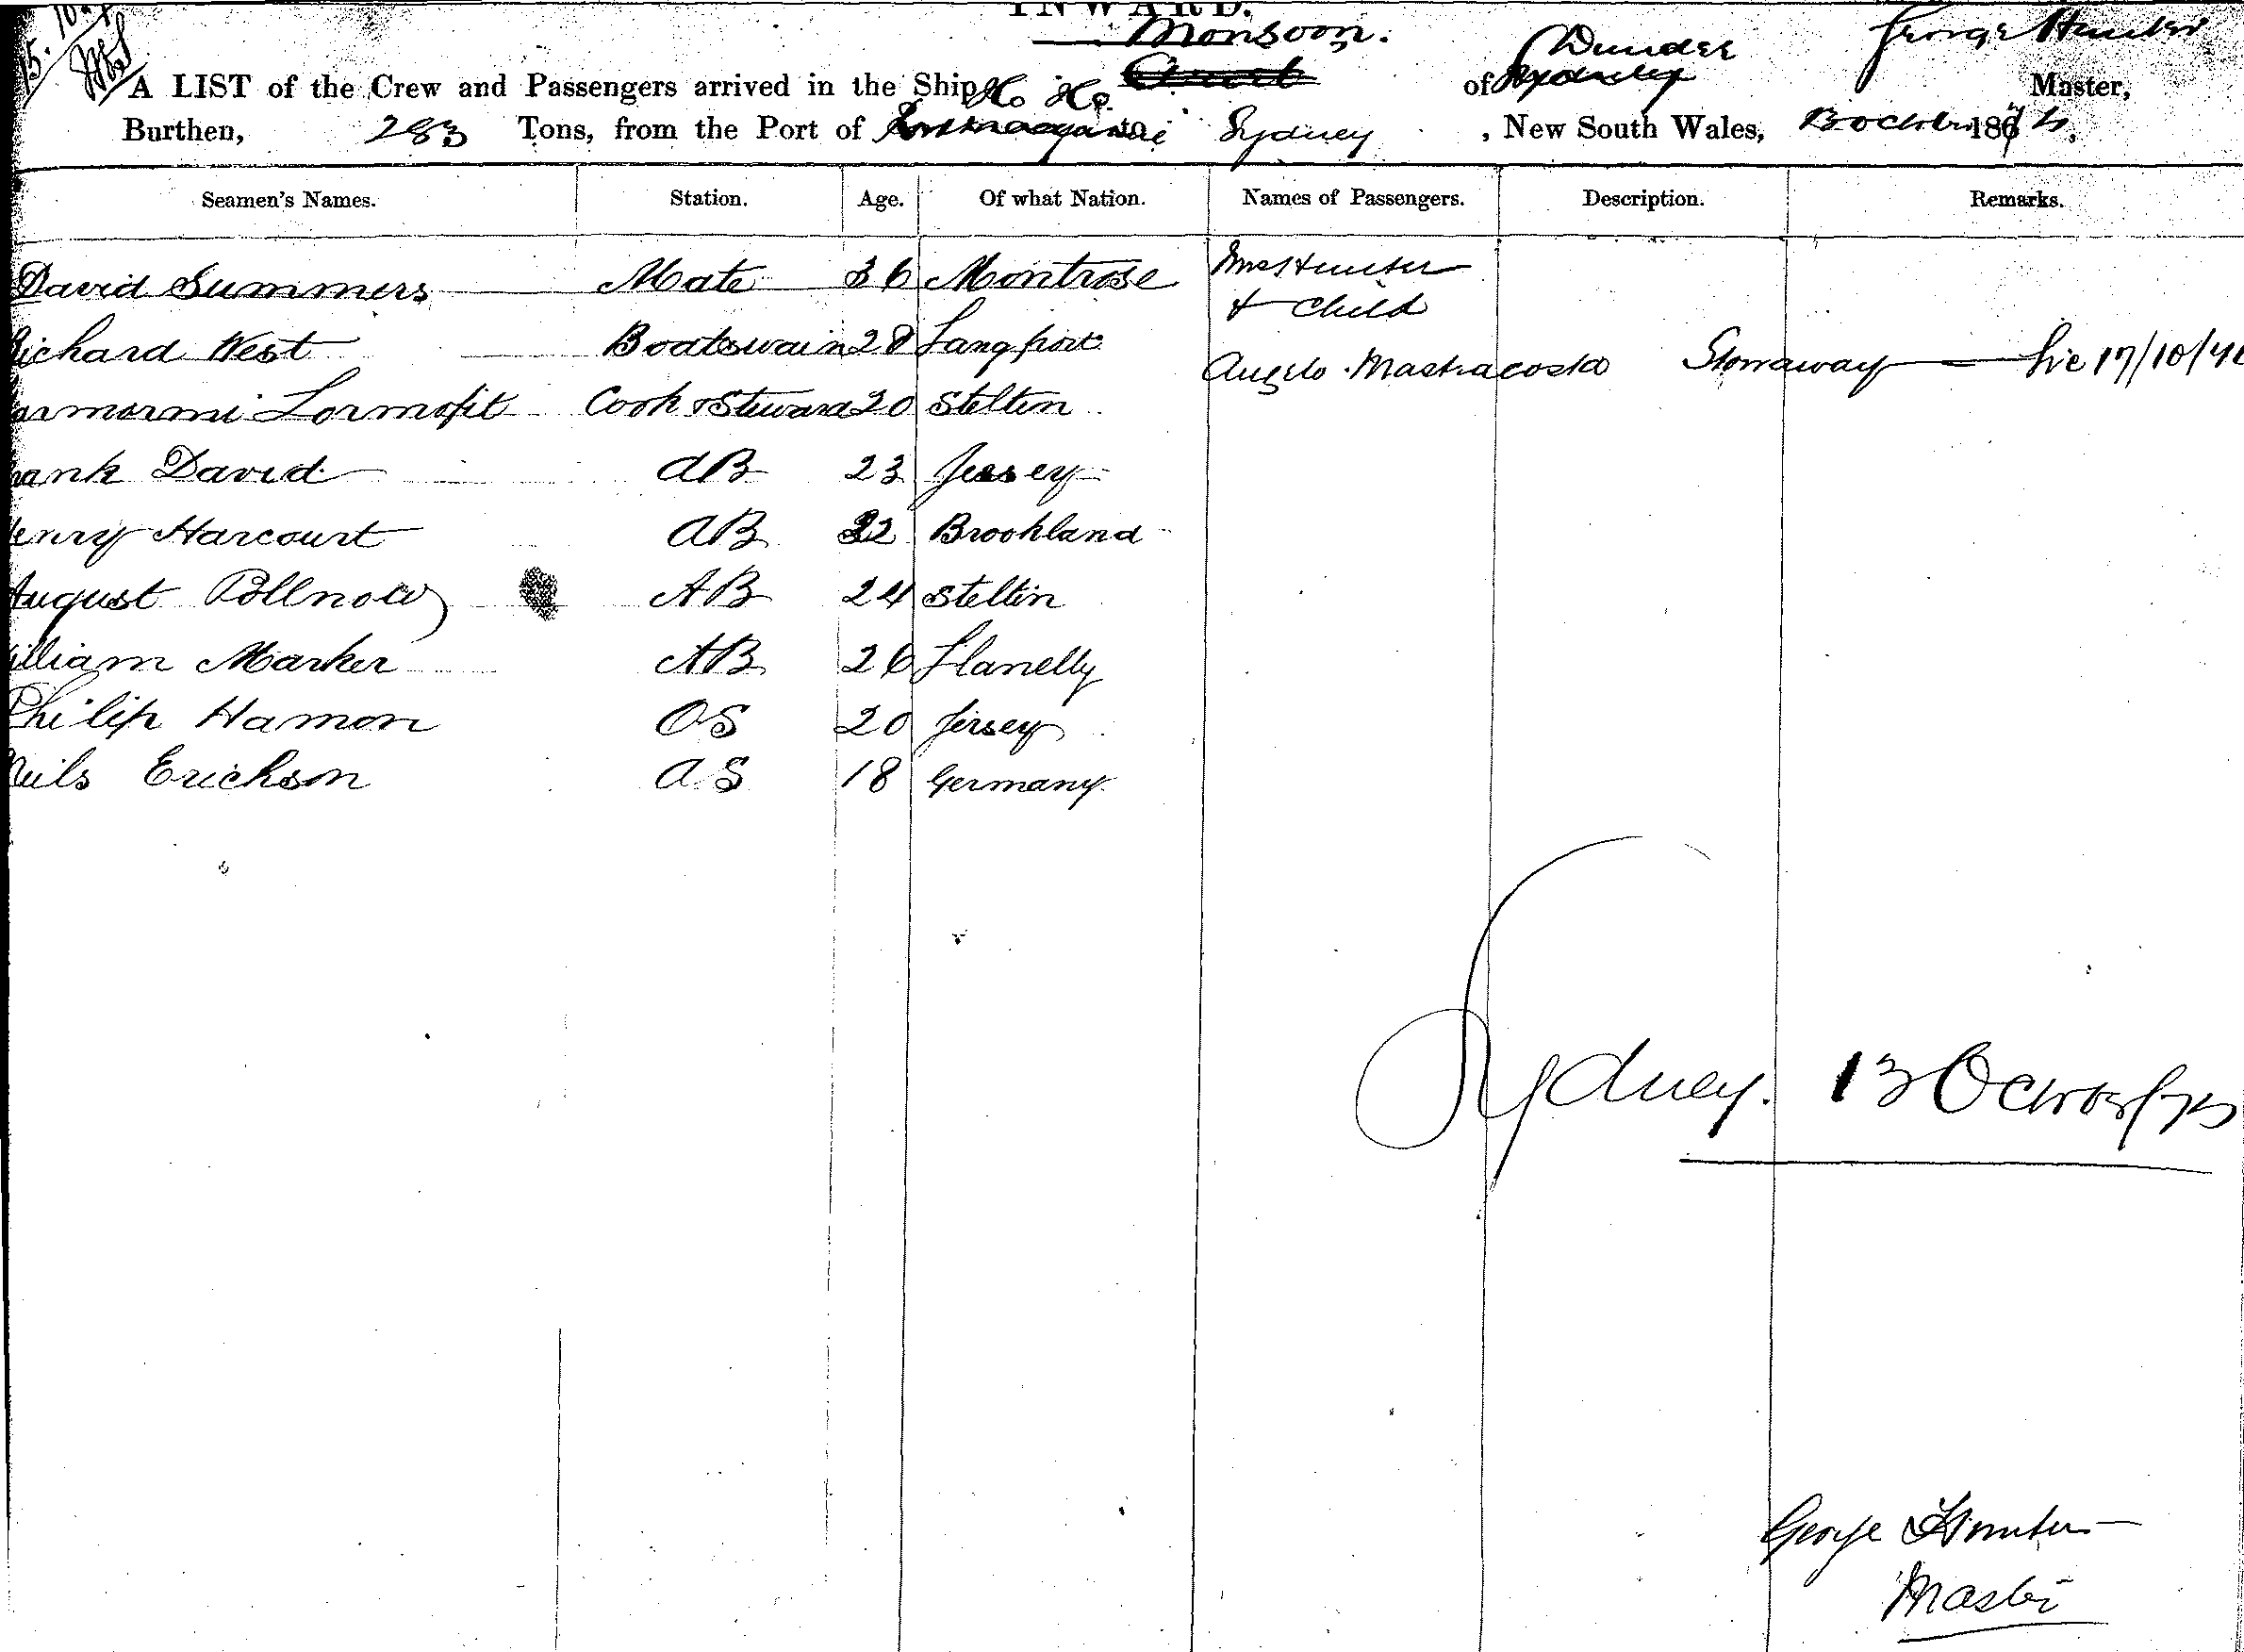 INWARD.
Monsoon.
Dundee
George Hunter
A LIST of the Crew and Passengers arrived in the Ship of Master,
Burthen, 283 Tons, from the Port of to Sydney , New South Wales, 13 October 1876.
Seamen's Names. Station. Age. Of what Nation. Names of Passengers. Description. Remarks.
David Summers Mate 36 Montrose Mrs Hunter
& Child
Richard West Boatswain 28 Langport
Angelo Mastracosta Stowaway 17/10/76
Lormofit Cook & Steward 20 Stettin
Frank David AB 23 Jersey
Henry Harcourt AB 22 Brookland
August Pollnow AB 24 Stettin
William Marker AB 26 Llanelly
Philip Hamon OS 20 Jersey
Neils Erickson OS 18 Germany
Sydney. 13 October/76
George Hunter
Master